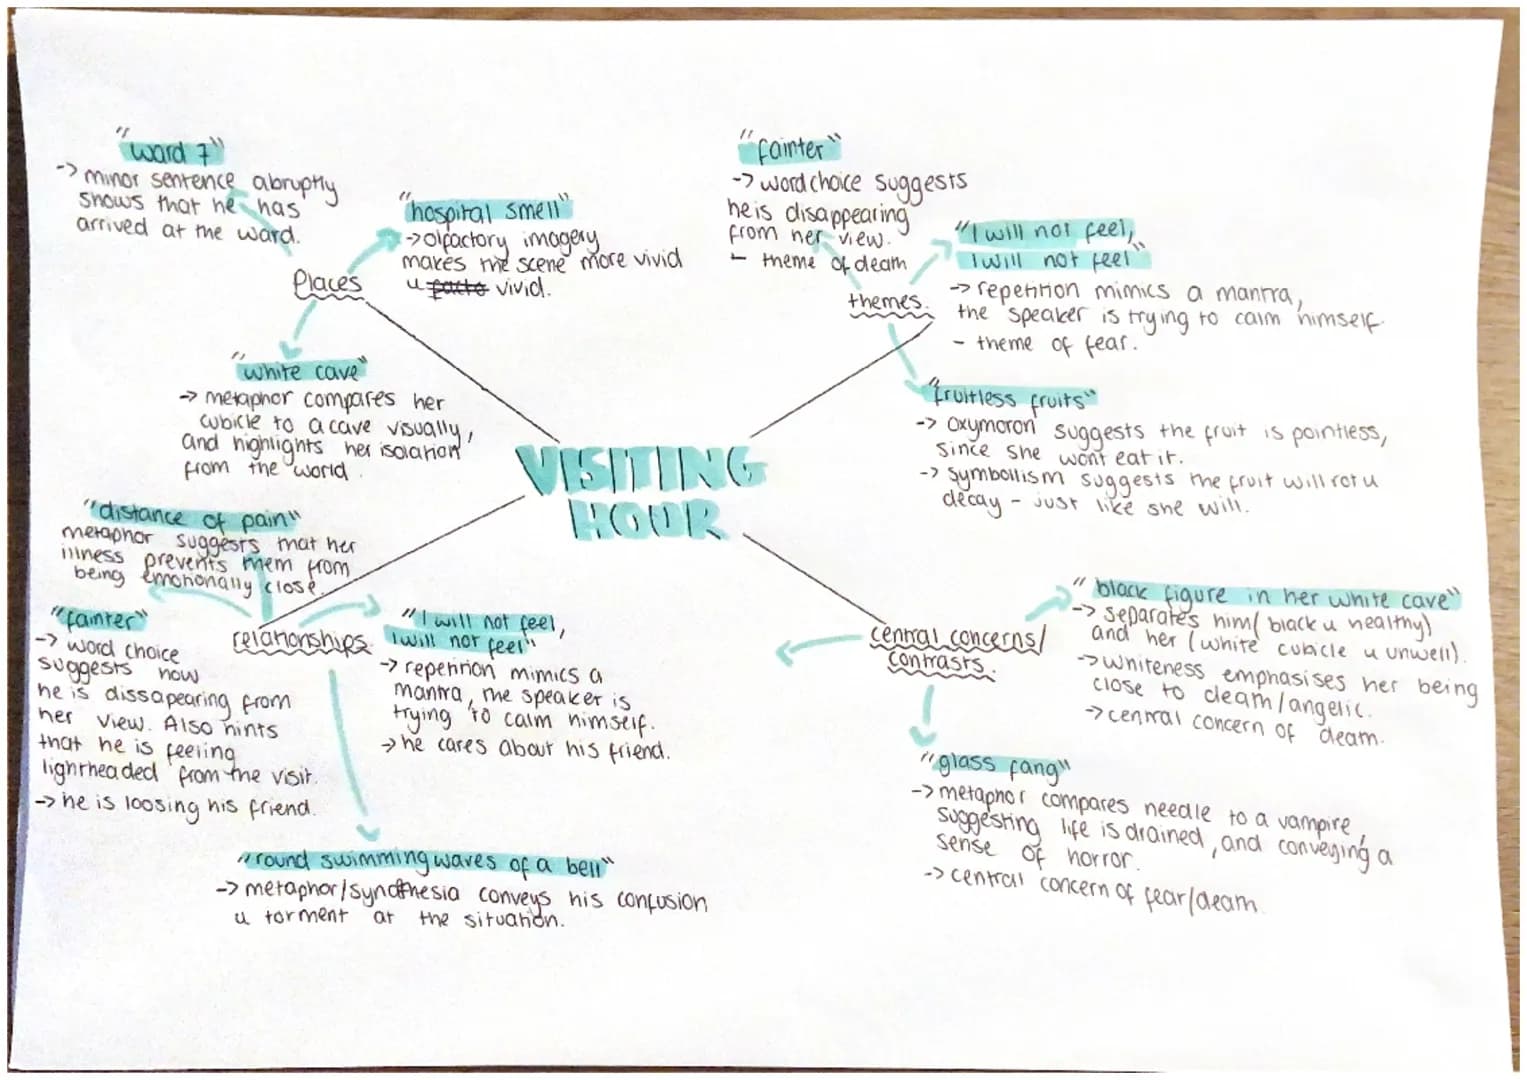 "ward 7"
-> minor sentence abruptly
shows that he has
arrived at the ward.
"hospital smell"
-> olfactory imagery
makes the scene more vivid
u vivid.
Places
"white cave"
-> metaphor compares her
cubicle to a cave visually,
and highlights her isolation
from the world.
"fainter"
-> word choice suggests
he is disappearing
from her view.
- theme of death
"I will not feel,
I will not feel"
-> repetition mimics a mantra,
the speaker is trying to calm himself.
- theme of fear.
themes.
"fruitless fruits"
-> oxymoron suggests the fruit is pointless,
since she wont eat it.
-> symbollism suggests the fruit will rot u
decay - just like she will.
VISITING
HOUR
"distance of pain"
metaphor suggests that her
illness prevents them from
being emotionally close.
"fainter"
-> word choice
suggests how
he is dissapearing from
her view. Also hints
that he is feeling
lightheaded from the visit.
-> he is loosing his friend.
relationships.
"I will not feel,
I will not feel"
-> repetition mimics a
mantra, the speaker is
trying to calm himself.
-> he cares about his friend.
"round swimming waves of a bell"
-> metaphor/synathesia conveys his confusion
u torment at the situation.
central concerns/
contrasts.
"black figure in her white cave"
-> separates him (black u healthy)
and her (white cubicle u unwell).
-> whiteness emphasises her being
close to death/angelic.
-> central concern of death.
"glass fang"
-> metaphor compares needle to a vampire,
suggesting life is drained, and conveying a
sense of horror.
-> central concern of fear/death.